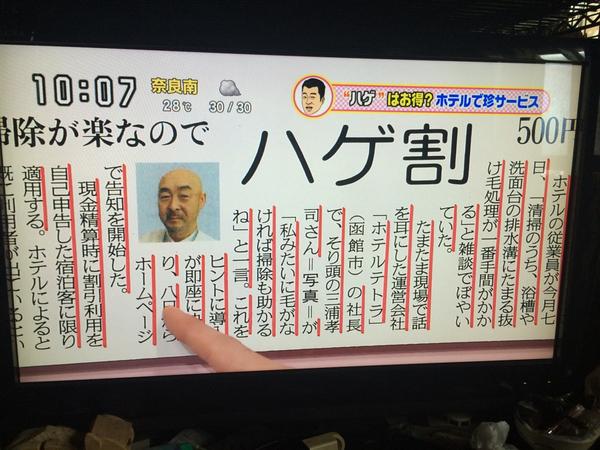 10:07
奈良南
28℃ 30/30
"ハゲ"はお得?ホテルで珍サービス
掃除が楽なので
ハゲ割
500円
ホテルの従業員が今月七
日、「清掃のうち、浴槽や
洗面台の排水溝にたまる抜
け毛処理が一番手間がかか
る」と雑談でぼやい
ていた。
たまたま現場で話
を耳にした運営会社
「ホテルテトラ」
(函館市)の社長
で、そり頭の三浦孝
司さん=写真=が
「私みたいに毛がな
ければ掃除も助かる
ね」と一言。これを
ヒントに導
が即座に
り、八日から
ホームページ
で告知を開始した。
現金精算時に割引利用を
自己申告した宿泊客に限り
適用する。ホテルによると